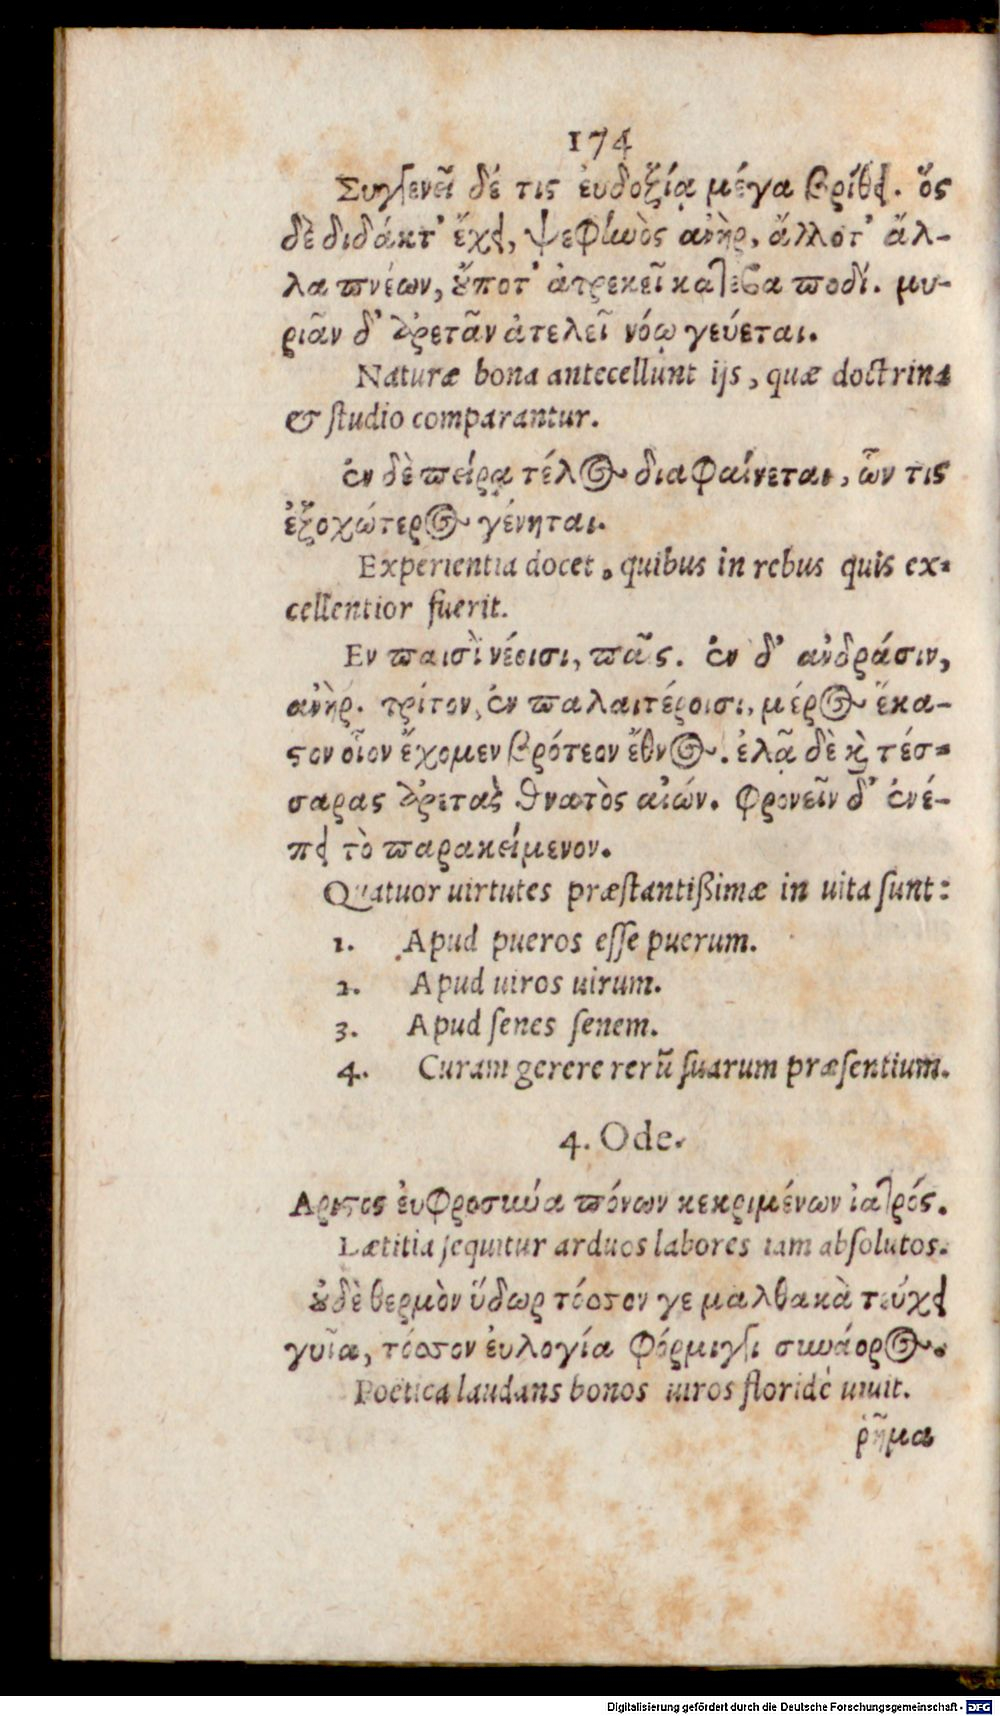 174
Συγγενεῖ δέ τις ἐυδοξίᾳ μέγα βρίθει. ὅς
δὲ διδάκτ' ἔχει, ψεφηνὸς ἀνὴρ, ἄλλοτ' ἄλ-
λα πνέων, ὄυποτ' ἀτρεκεῖ κατέβα ποδί. μυ-
ριᾶν δ' ἀρετᾶν ἀτελεῖ νόῳ γεύεται.
Naturæ bona antecellunt ijs, quæ doctrina
& studio comparantur.
ἐν δὲ πείρᾳ τέλος διαφαίνεται, ὧν τις
ἐξοχώτερος γένηται.
Experientia docet, quibus in rebus quis ex-
cellentior fuerit.
Εν παισὶ νέοισι, παῖς. ἐν δ' ἀνδράσιν,
ἀνὴρ. τρίτον, ἐν παλαιτέροισι, μέρος ἕκα-
στον οἷον ἔχομεν βρότεον ἔθνος. ἐλᾷ δὲ καὶ τέσ-
σαρας ἀρετὰς θνατὸς αἰών. φρονεῖν δ' ἐνέ-
πει τὸ παρακείμενον.
Quatuor uirtutes præstantißimæ in uita sunt:
1. Apud pueros esse puerum.
2. Apud uiros uirum.
3. Apud senes senem.
4. Curam gerere rerũ suarum præsentium.
4. Ode.
Αριστος ἐυφροσύνα πόνων κεκριμένων ἰατρός.
Lætitia sequitur arduos labores iam absolutos.
ὀυδὲ θερμὸν ὕδωρ τόσσον γε μαλθακὰ τεύχει
γυῖα, τόσσον ἐυλογία φόρμιγγι συνάορος.
Poëtica laudans bonos uiros floridè uiuit.
ῥῆμα
Digitalisierung gefördert durch die Deutsche Forschungsgemeinschaft - DFG